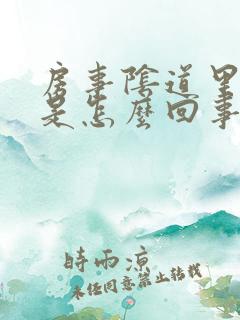 房事陰道里
是怎麼回事
時雨涼
未经同意禁止转载